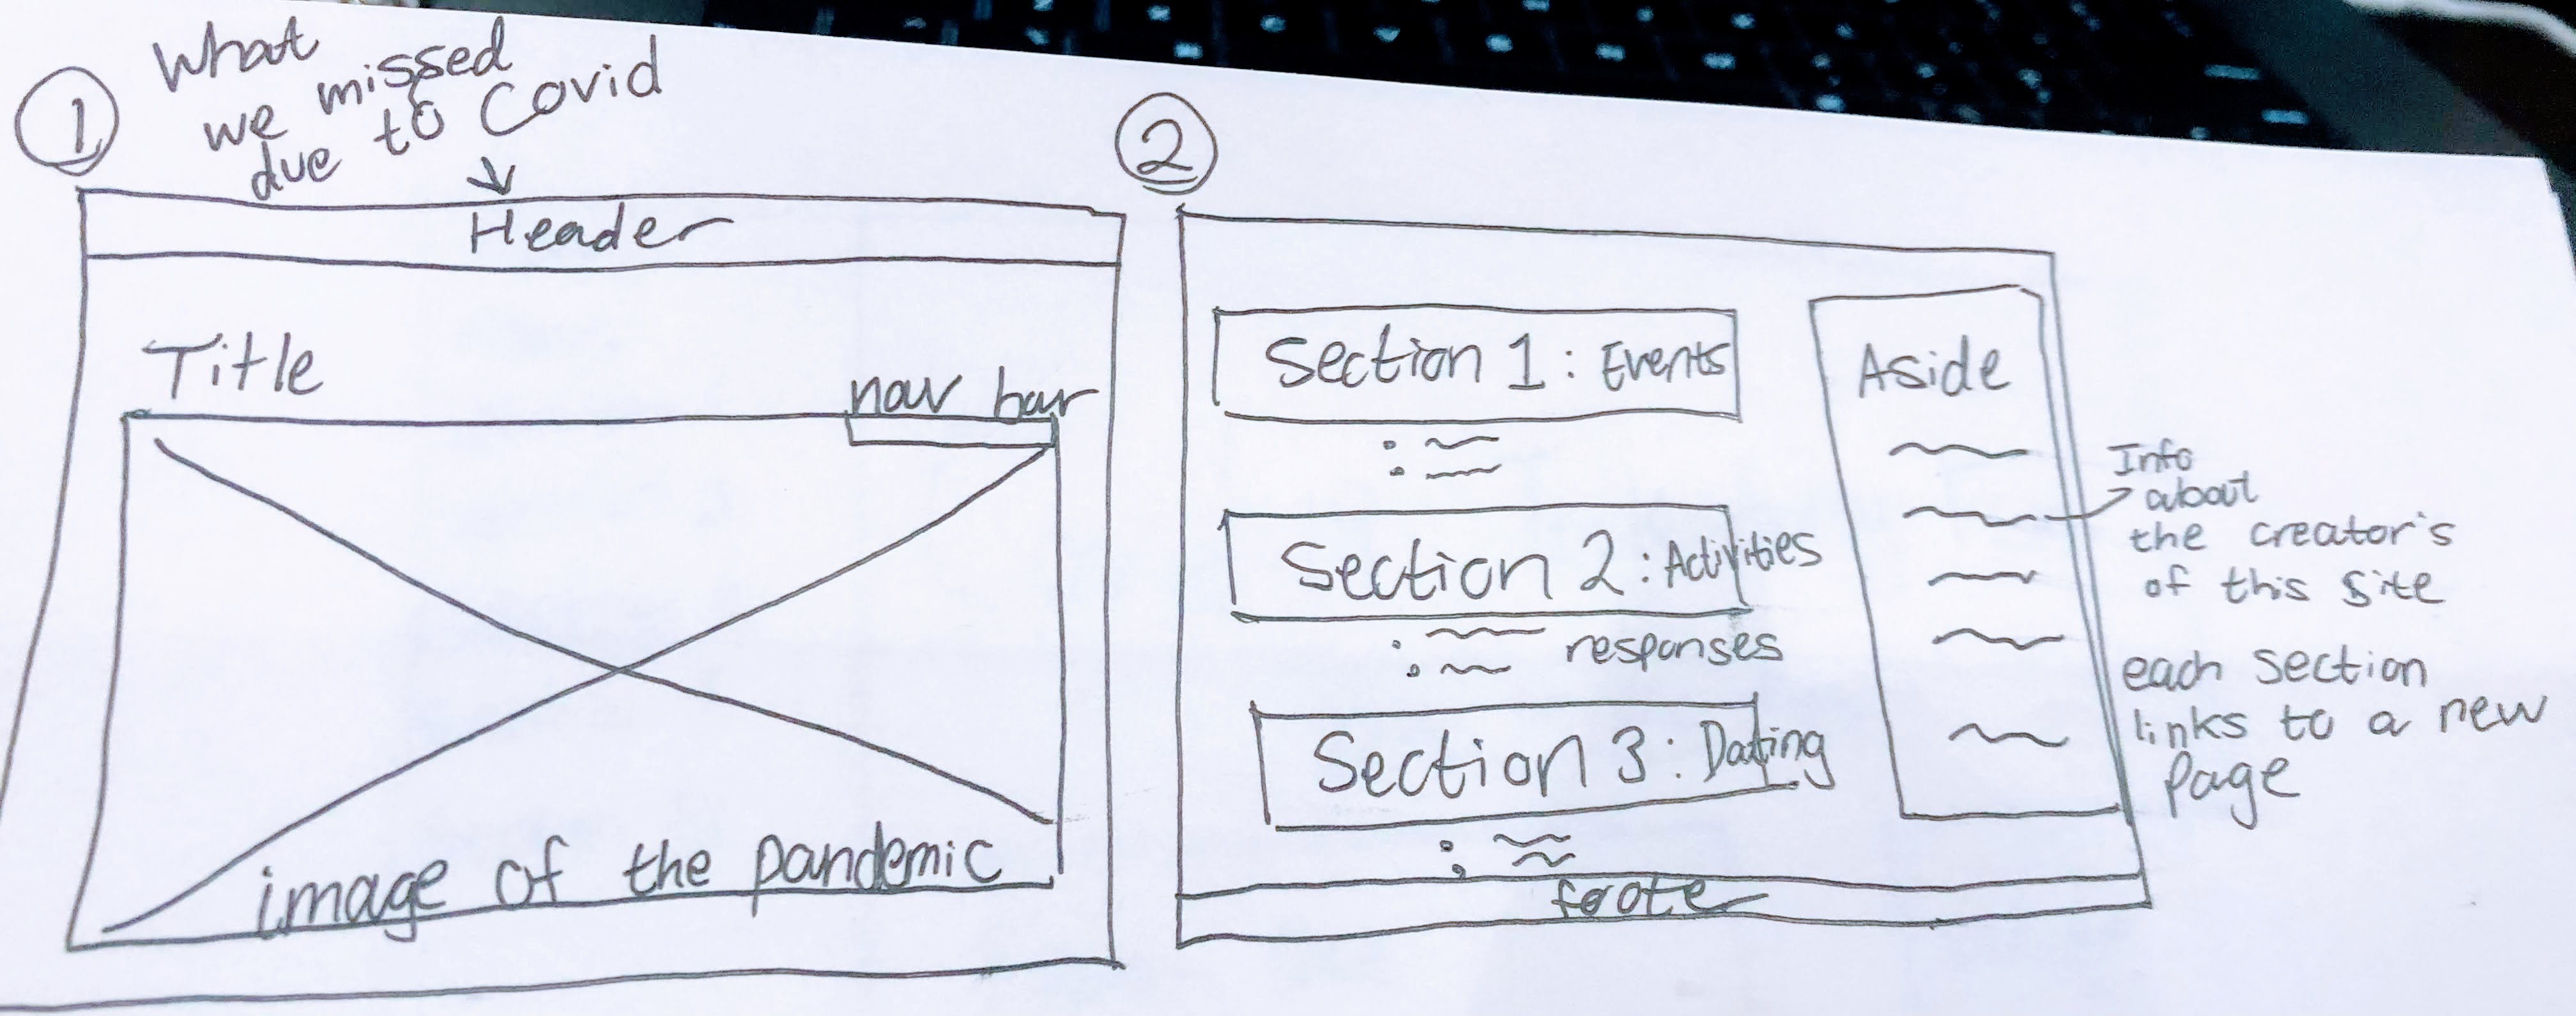 1
What
we missed
due to Covid
Header
Title
nav bar
image of the pandemic
2
Section 1: Events
Section 2: Activities
responses
Section 3: Dating
footer
Aside
Info
about
the creator's
of this site
each section
links to a new
page